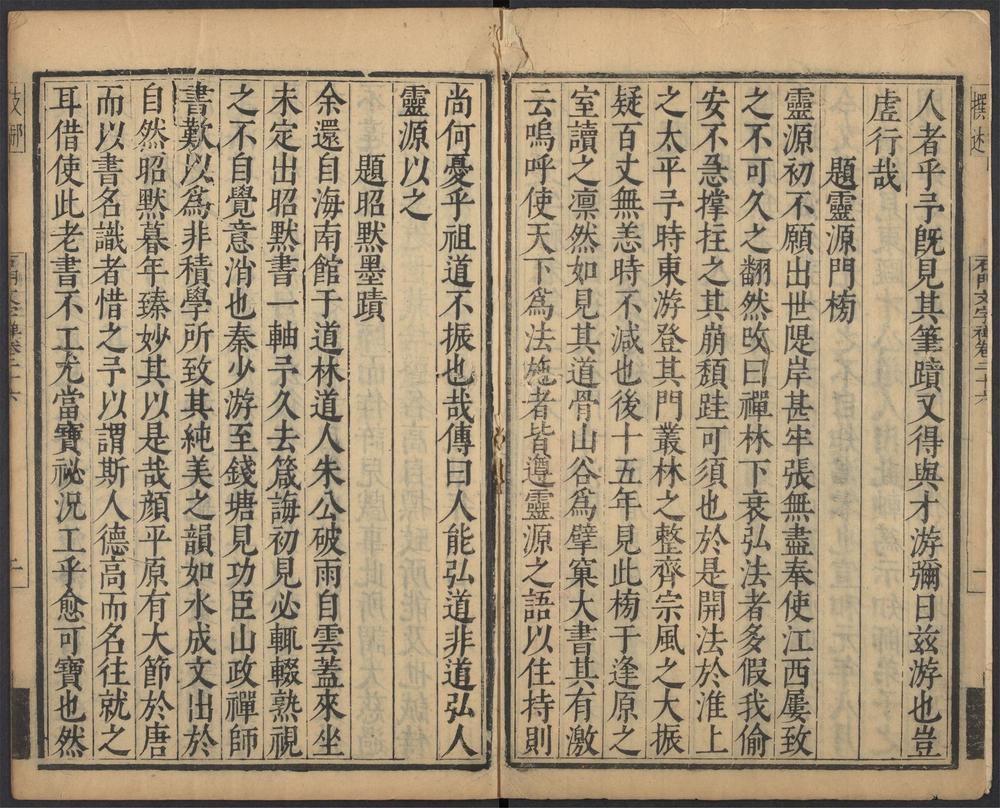 撰述
石門文字禪卷二十六
一
人者乎予既見其筆蹟又得與才游彌日茲游也豈
虛行哉
題靈源門榜
靈源初不願出世隄岸甚牢張無盡奉使江西屢致
之不可久之翻然改曰禪林下衰弘法者多假我偷
安不急撐拄之其崩頹跬可須也於是開法於淮上
之太平予時東游登其門叢林之整齊宗風之大振
疑百丈無恙時不減也後十五年見此榜于逢原之
室讀之凜然如見其道骨山谷為擘窠大書其有激
云嗚呼使天下為法施者皆遵靈源之語以住持則
尚何憂乎祖道不振也哉傳曰人能弘道非道弘人
靈源以之
題昭默墨蹟
余還自海南館于道林道人朱公破雨自雲蓋來坐
未定出昭默書一軸予久去箴誨初見必輒輟熟視
之不自覺意消也秦少游至錢塘見功臣山政禪師
書歎以為非積學所致其純美之韻如水成文出於
自然昭默暮年臻妙其以是哉顏平原有大節於唐
而以書名識者惜之予以謂斯人德高而名往就之
耳借使此老書不工尤當寶祕況工乎愈可寶也然